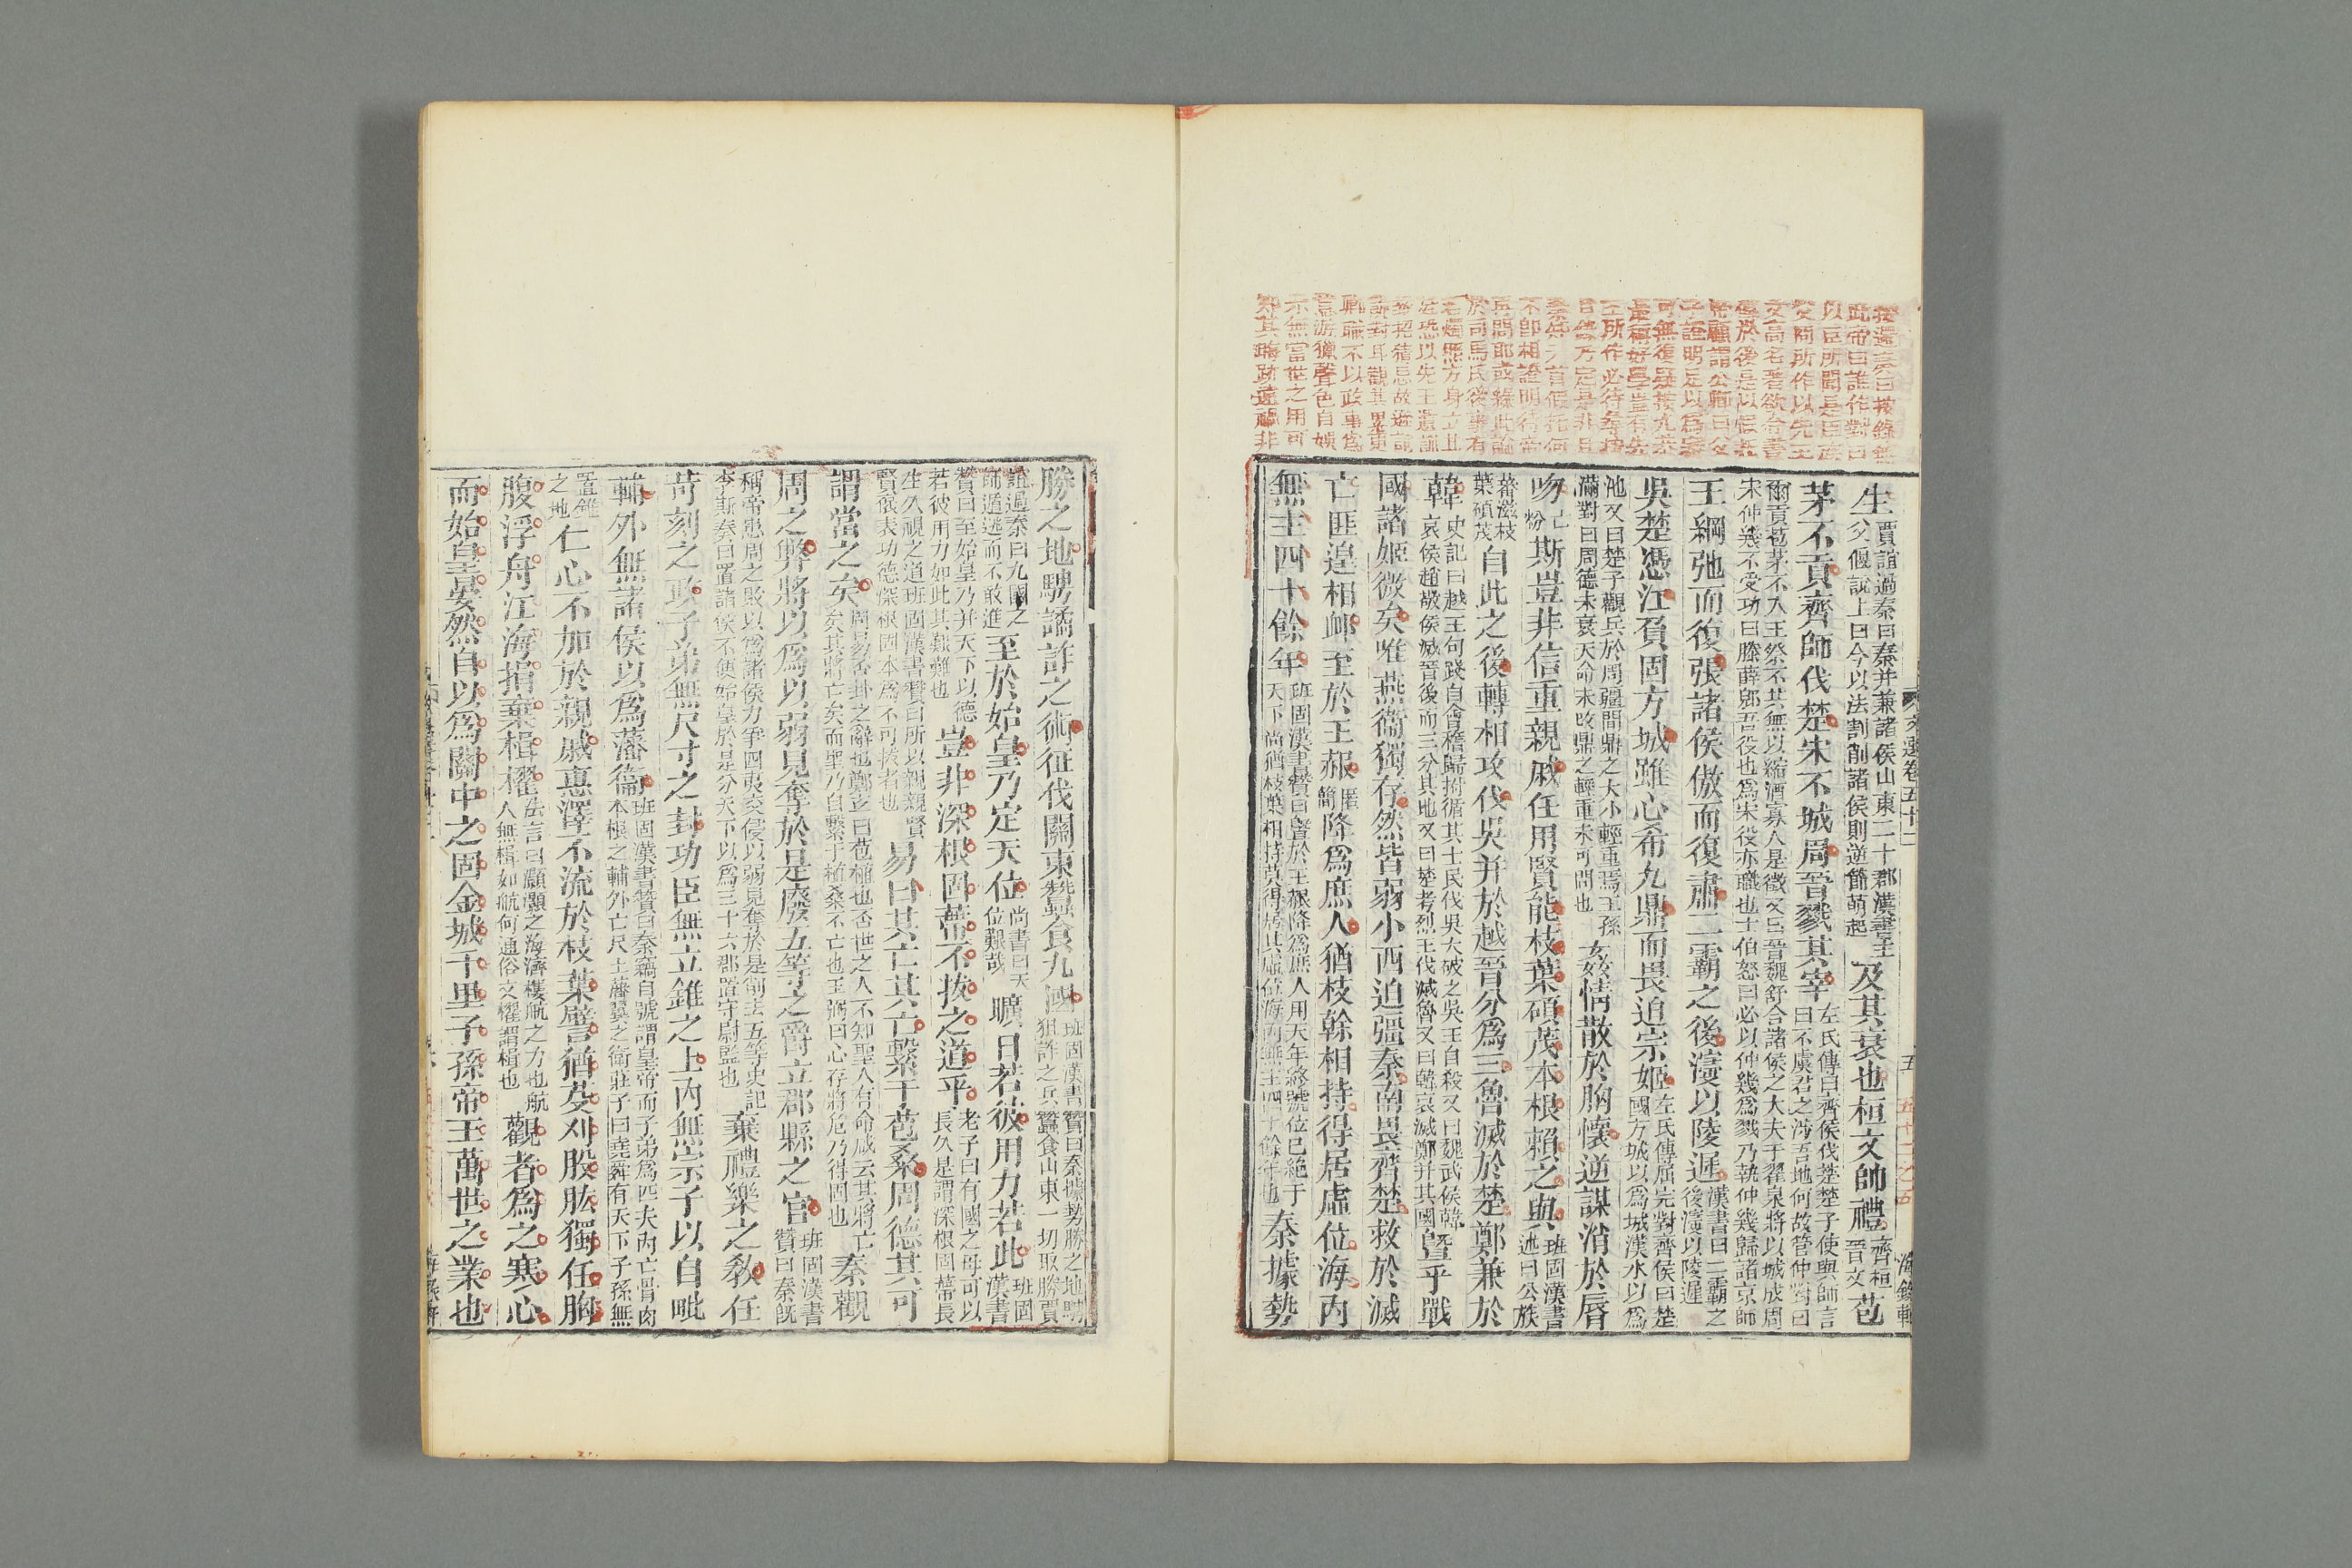 此帝曰誰作對曰
以臣所聞是臣族
父冏所作以先王
文高名著欲令書
傳於後是以假託
帝顧謂公卿曰父
子證明足以爲審
文選卷五十二 五 海錄軒
生賈誼過秦曰秦并兼諸侯山東三十郡漢書主父偃說上曰今以法割削諸侯則逆節萌起及其衰也桓文帥禮齊桓晉文苞
茅不貢齊師伐楚宋不城周晉戮其宰左氏傳曰齊侯伐楚楚子使與師言曰不虞君之涉吾地何故管仲對曰
爾貢苞茅不入王祭不共無以縮酒寡人是徵又曰晉魏舒合諸侯之大夫于翟泉將以城成周宋仲幾不受功曰滕薛郳吾役也爲宋役亦職也士伯怒曰必以仲幾爲戮乃執仲幾歸諸京師
王綱弛而復張諸侯傲而復肅二霸之後浸以陵遲漢書曰二霸之後浸以陵遲
吳楚憑江負固方城雖心希九鼎而畏迫宗姬左氏傳屈完對齊侯曰楚國方城以爲城漢水以爲
池又曰楚子觀兵於周疆問鼎之大小輕重焉王孫滿對曰周德未衰天命未改鼎之輕重未可問也姦情散於胸懷逆謀消於脣
吻亡粉斯豈非信重親戚任用賢能枝葉碩茂本根賴之與班固漢書述曰公族
蕃滋枝葉碩茂自此之後轉相攻伐吳并於越晉分爲三魯滅於楚鄭兼於
韓史記曰越王句踐自會稽歸拊循其士民伐吳大破之吳王自殺又曰魏武侯韓哀侯趙敬侯滅晉後而三分其地又曰楚考烈王伐滅魯又曰韓哀滅鄭并其國曁乎戰
國諸姬微矣唯燕衞獨存然皆弱小西迫疆秦南畏齊楚救於滅
亡匪遑相卹至於王赧匿簡降爲庶人猶枝幹相持得居虛位海內
無主四十餘年班固漢書贊曰曁於王赧降爲庶人用天年終號位已絕于天下尚猶枝葉相持莫得居其虛位海內無主四十餘年也秦據勢
勝之地騁譎詐之術征伐關東蠶食九國班固漢書贊曰秦據勢勝之地騁狙詐之兵蠶食山東一切取勝賈
誼過秦曰九國之師遁逃而不敢進至於始皇乃定天位尚書曰天位艱哉曠日若彼用力若此班固漢書
贊曰至始皇乃并天下以德若彼用力如此其艱難也豈非深根固蔕不拔之道乎老子曰有國之母可以長久是謂深根固蔕長
生久視之道班固漢書贊曰所以親親賢賢褒表功德深根固本爲不可拔者也易曰其亡其亡繫于苞桑周德其可
謂當之矣周易否卦之辭也鄭玄曰苞植也否世之人不知聖人有命咸云其將亡矣其將亡矣而聖乃自繫于植桑不亡也王弼曰心存將危乃得固也秦觀
周之弊將以爲以弱見奪於是廢五等之爵立郡縣之官班固漢書贊曰秦既
稱帝患周之敗以爲諸侯力爭四夷交侵以弱見奪於是削去五等史記李斯奏曰置諸侯不便始皇於是分天下以爲三十六郡置守尉監也棄禮樂之敎任
苛刻之政子弟無尺寸之封功臣無立錐之土內無宗子以自毗
輔外無諸侯以爲藩衞班固漢書贊曰秦竊自號謂皇帝而子弟爲匹夫內亡骨肉本根之輔外亡尺土藩翼之衞莊子曰堯舜有天下子孫無
置錐之地仁心不加於親戚惠澤不流於枝葉譬猶芟刈股肱獨任胸
腹浮舟江海捐棄楫櫂法言曰灝灝之海濟樓航之力也航人無楫如航何通俗文櫂謂楫也觀者爲之寒心
而始皇晏然自以爲關中之固金城千里子孫帝王萬世之業也